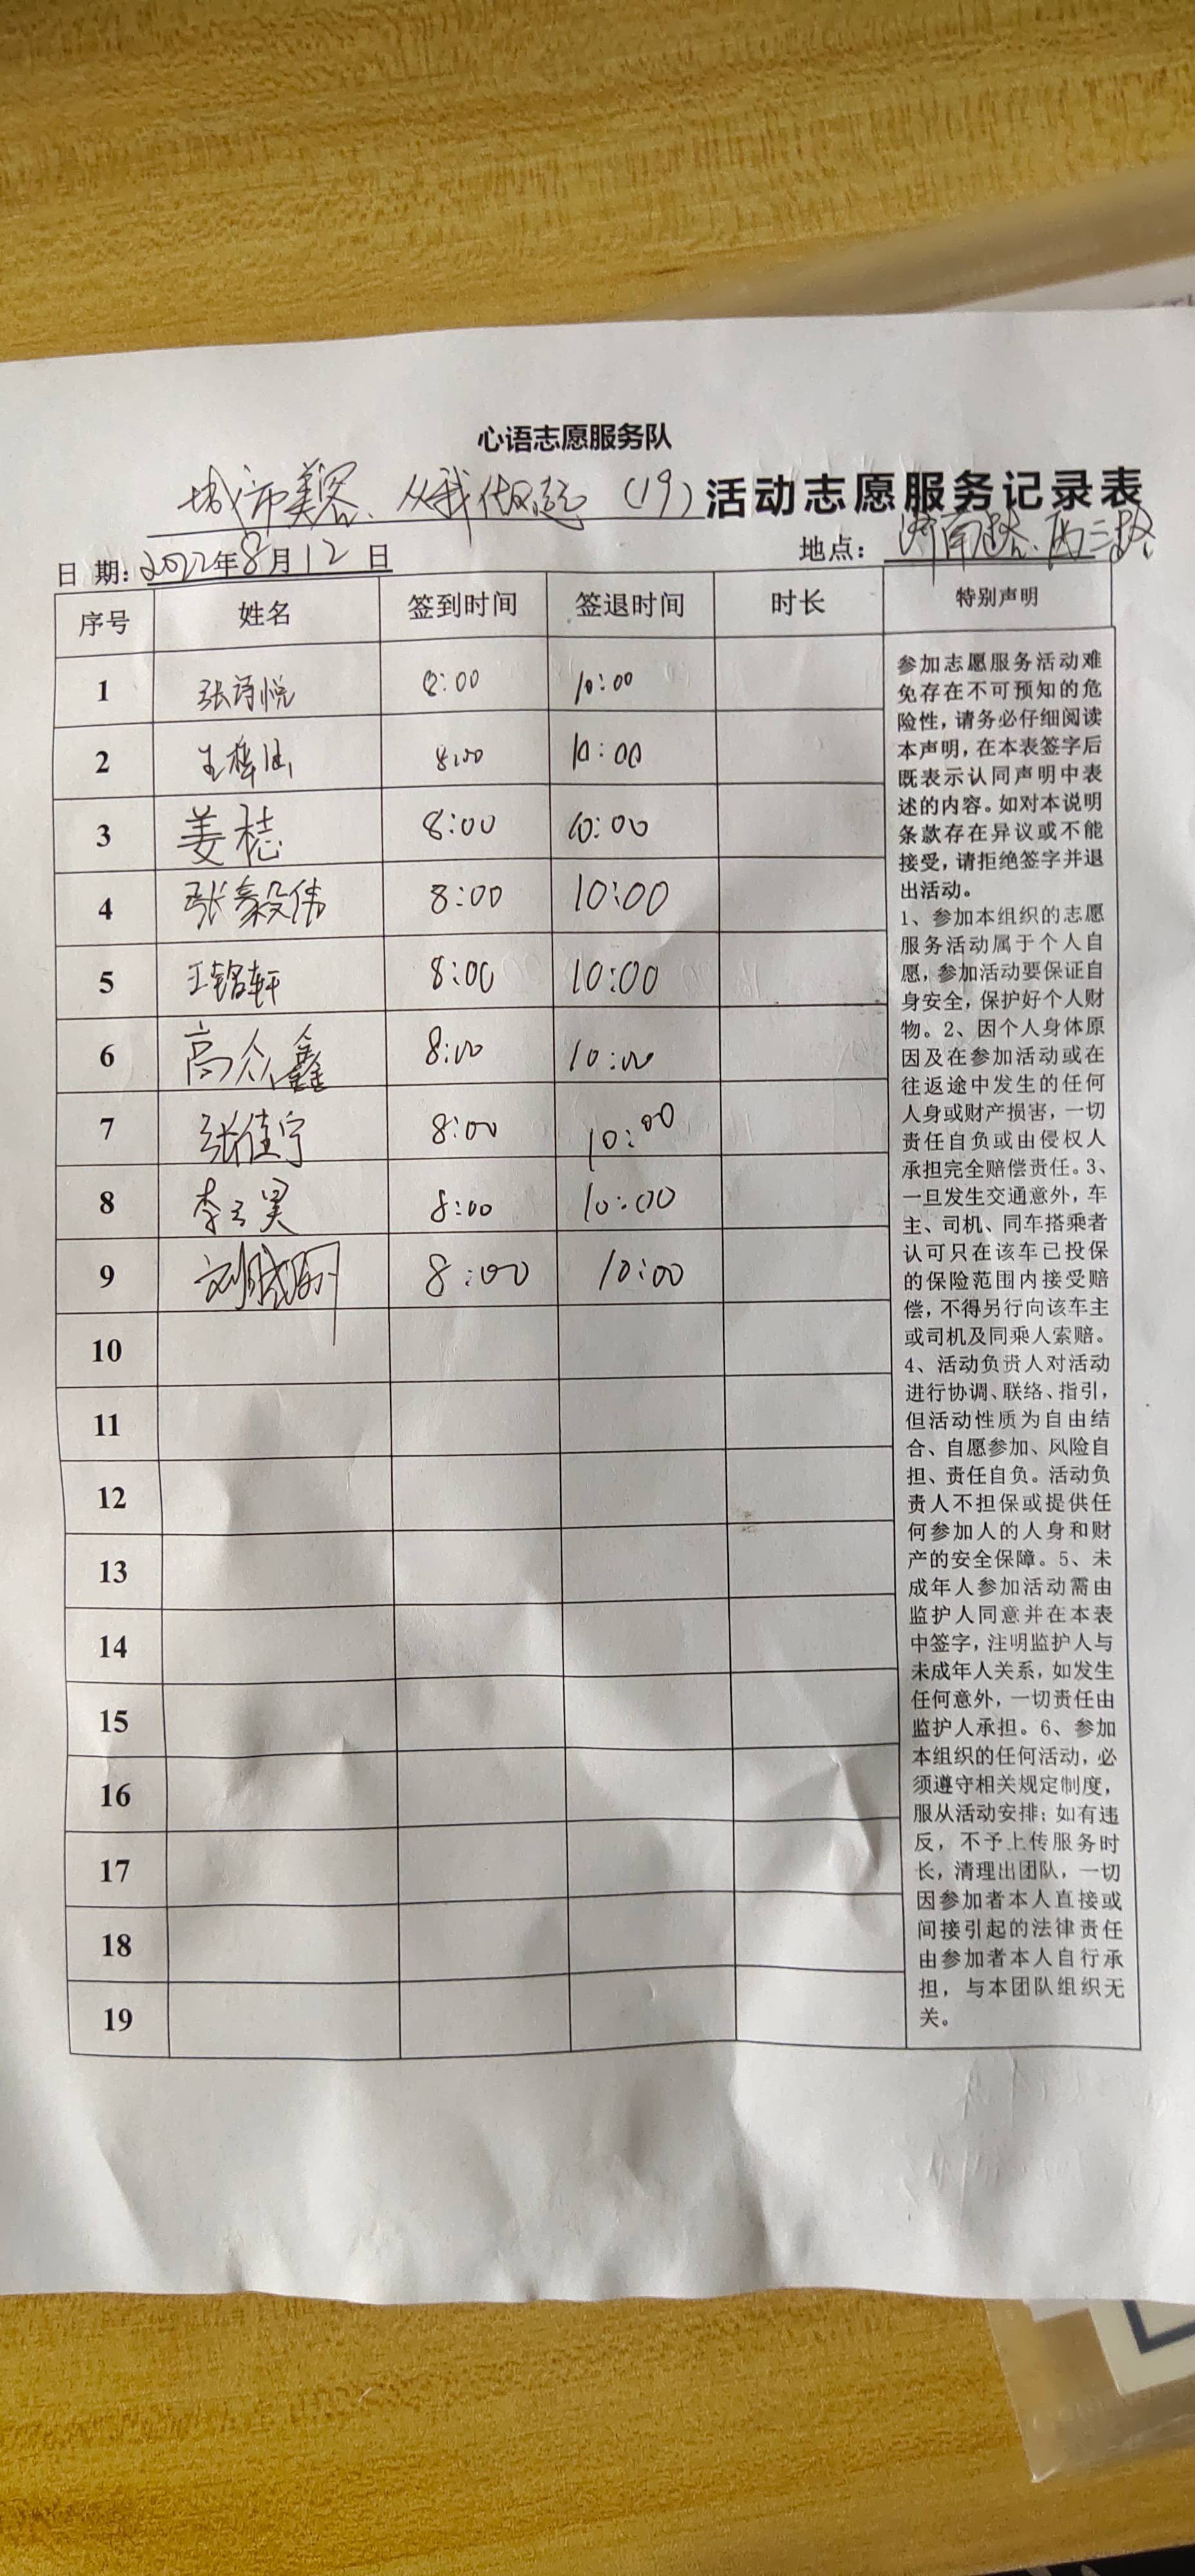 心语志愿服务队
城市美容、从我做起 (19) 活动志愿服务记录表
日 期: 2022年8月12日 地点: 济南路、高三路
序号 姓名 签到时间 签退时间 时长 特别声明
1 张诗悦 8:00 10:00
2 王梓 8:00 10:00
3 姜梽 8:00 10:00
4 张毅伟 8:00 10:00
5 王铭轩 8:00 10:00
6 高众鑫 8:00 10:00
7 张佳宁 8:00 10:00
8 李云昊 8:00 10:00
9 刘 8:00 10:00
10
11
12
13
14
15
16
17
18
19
参加志愿服务活动难
免存在不可预知的危
险性，请务必仔细阅读
本声明，在本表签字后
既表示认同声明中表
述的内容。如对本说明
条款存在异议或不能
接受，请拒绝签字并退
出活动。
1、参加本组织的志愿
服务活动属于个人自
愿，参加活动要保证自
身安全，保护好个人财
物。2、因个人身体原
因及在参加活动或在
往返途中发生的任何
人身或财产损害，一切
责任自负或由侵权人
承担完全赔偿责任。3、
一旦发生交通意外，车
主、司机、同车搭乘者
认可只在该车已投保
的保险范围内接受赔
偿，不得另行向该车主
或司机及同乘人索赔。
4、活动负责人对活动
进行协调、联络、指引，
但活动性质为自由结
合、自愿参加、风险自
担、责任自负。活动负
责人不担保或提供任
何参加人的人身和财
产的安全保障。5、未
成年人参加活动需由
监护人同意并在本表
中签字，注明监护人与
未成年人关系，如发生
任何意外，一切责任由
监护人承担。6、参加
本组织的任何活动，必
须遵守相关规定制度，
服从活动安排；如有违
反，不予上传服务时
长，清理出团队，一切
因参加者本人直接或
间接引起的法律责任
由参加者本人自行承
担，与本团队组织无
关。